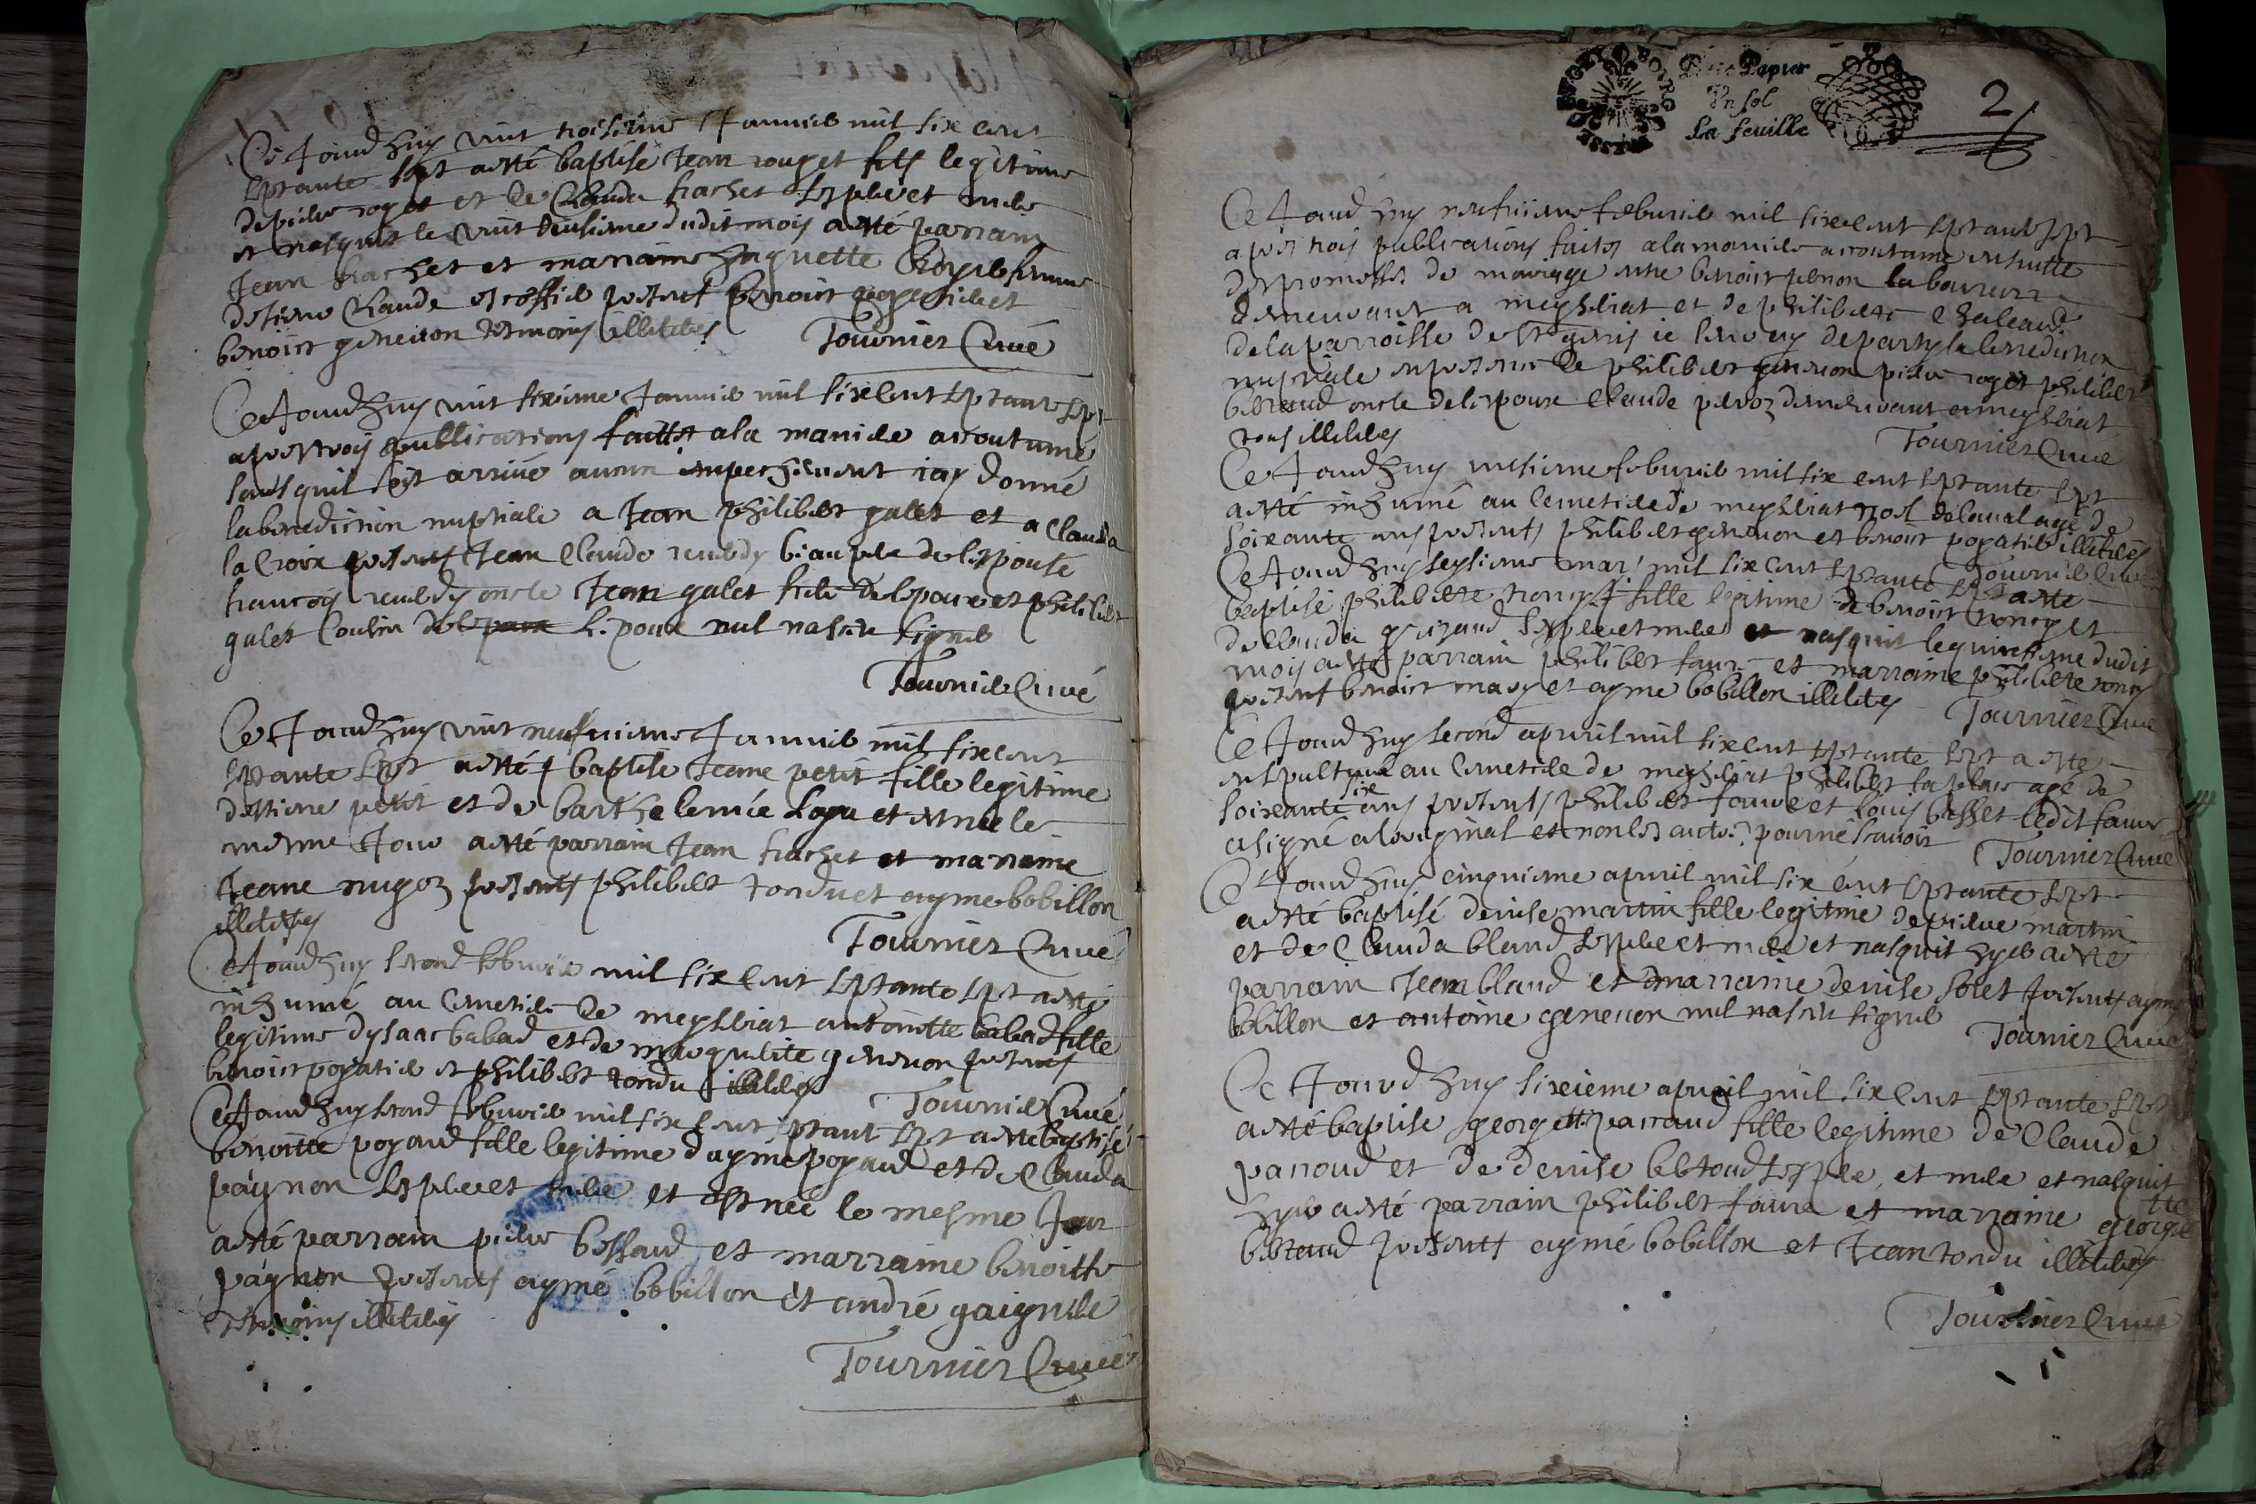 Ce Jourdhuy vint troisieme Janvier mil six cent
septante sept a esté baptisé Jean rouget fils legitime
de pierre roget et de Clauda frachet ses pere et mere
et nasquit le vint deusieme dudit mois a esté parrain
Jean frachet et marraine huguette femme
de sieur Claude presents benoist et
benoist genevon tesmoins illiteres Tournier Curé
Ce Jourdhuy vint sixieme Janvier mil six cent septante sept
apres trois publications faittes a la maniere accoutumé
sans quil soit arrivé aucun empechement iay donné
la benediction nuptiale a Jean philibert galet et a Clauda
la Croix presents Jean Claude reverdy biaupere de lespouse
francois reverdy oncle Jean galet frere de lespoux et philibert
galet Cousin de lespoux nul na sceu signer
Tournier Curé
Ce Jourdhuy vint neufvieme Janvier mil six cent
septante sept a esté baptisé Jeane petit fille legitime
destiene petit et de barthelemie et est née le
mesme Jour a esté parrain Jean frachet et marraine
Jeane nugoz presents philibert tondu et ayme bobillon
illiteres
Tournier Curé
Ce Jourdhuy second febvrier mil six cent septante sept a esté
inhumé au Cemetiere de meyseriat antoinette babad fille
legitime dysaac babad et de marguerite genevon presents
benoist poyatier et philibert tondu illiteres
Tournier Curé
Ce Jourdhuy second febvrier mil six cent septante sept a esté baptisé
benoitte poyaud fille legitime daymé poyaud et de Clauda
pagnon ses pere et mere et est née le mesme Jour
a esté parrain pierre bessaud et marraine benoitte
pagnon presents aymé bobillon et andré
tesmoins illiteres
Tournier Curé
Deux Papier
Un sol
La feuille
2
Ce Jourdhuy neufvieme febvrier mil six cent septante sept
apres trois publications faites a la maniere accoutume ensuitte
des promesses de mariage entre benoist penon laboureur
demeurant a meyseriat et de philiberte
de la parroisse de ie
nuptiale en presence de philibert genevon pierre roget philibert
bereaud oncle de lespouse Claude peroz demeurant a meyseriat
tous illiteres
Tournier Curé
Ce Jourdhuy febvrier mil six cent septante sept
a esté inhumé au Cemetiere de meyseriat noel delaval agé de
soixante ans presents philibert genevon et benoist poyatier illiteres
Tournier Curé
Ce Jourdhuy seysieme mars mil six cent septante sept a esté
baptisé philiberte fille legitime de benoist
de Clauda ses pere et mere et nasquit le quinsieme dudit
mois a esté parrain philibert faure et marraine philiberte
presents benoist et ayme bobillon illiteres
Tournier Curé
Ce Jourdhuy second apvril mil six cent septante sept a esté
ensepulturé au Cemetiere de meyseriat philibert agé de
soixante six ans presents philibert faure et louys basset ledit faure
a signé a loriginal et non les autres pour ne scavoir
Tournier Curé
Ce Jourdhuy cinquieme apvril mil six cent septante sept
a esté baptisé denise martin fille legitime de pierre martin
et de Clauda bland ses pere et mere et nasquit hyer a esté
parrain Jean bland et marraine denise solet presents ayme
bobillon et antoine genevon nul na sceu signer
Tournier Curé
Ce Jourdhuy sixieme apvril mil six cent septante sept
a esté baptisé georgette parraud fille legitime de Claude
parroud et de denise bertoud ses pere et mere et nasquit
hyer a esté parrain philibert faure et marraine georgette
bereaud presents aymé bobillon et Jean tondu illiteres
Tournier Curé